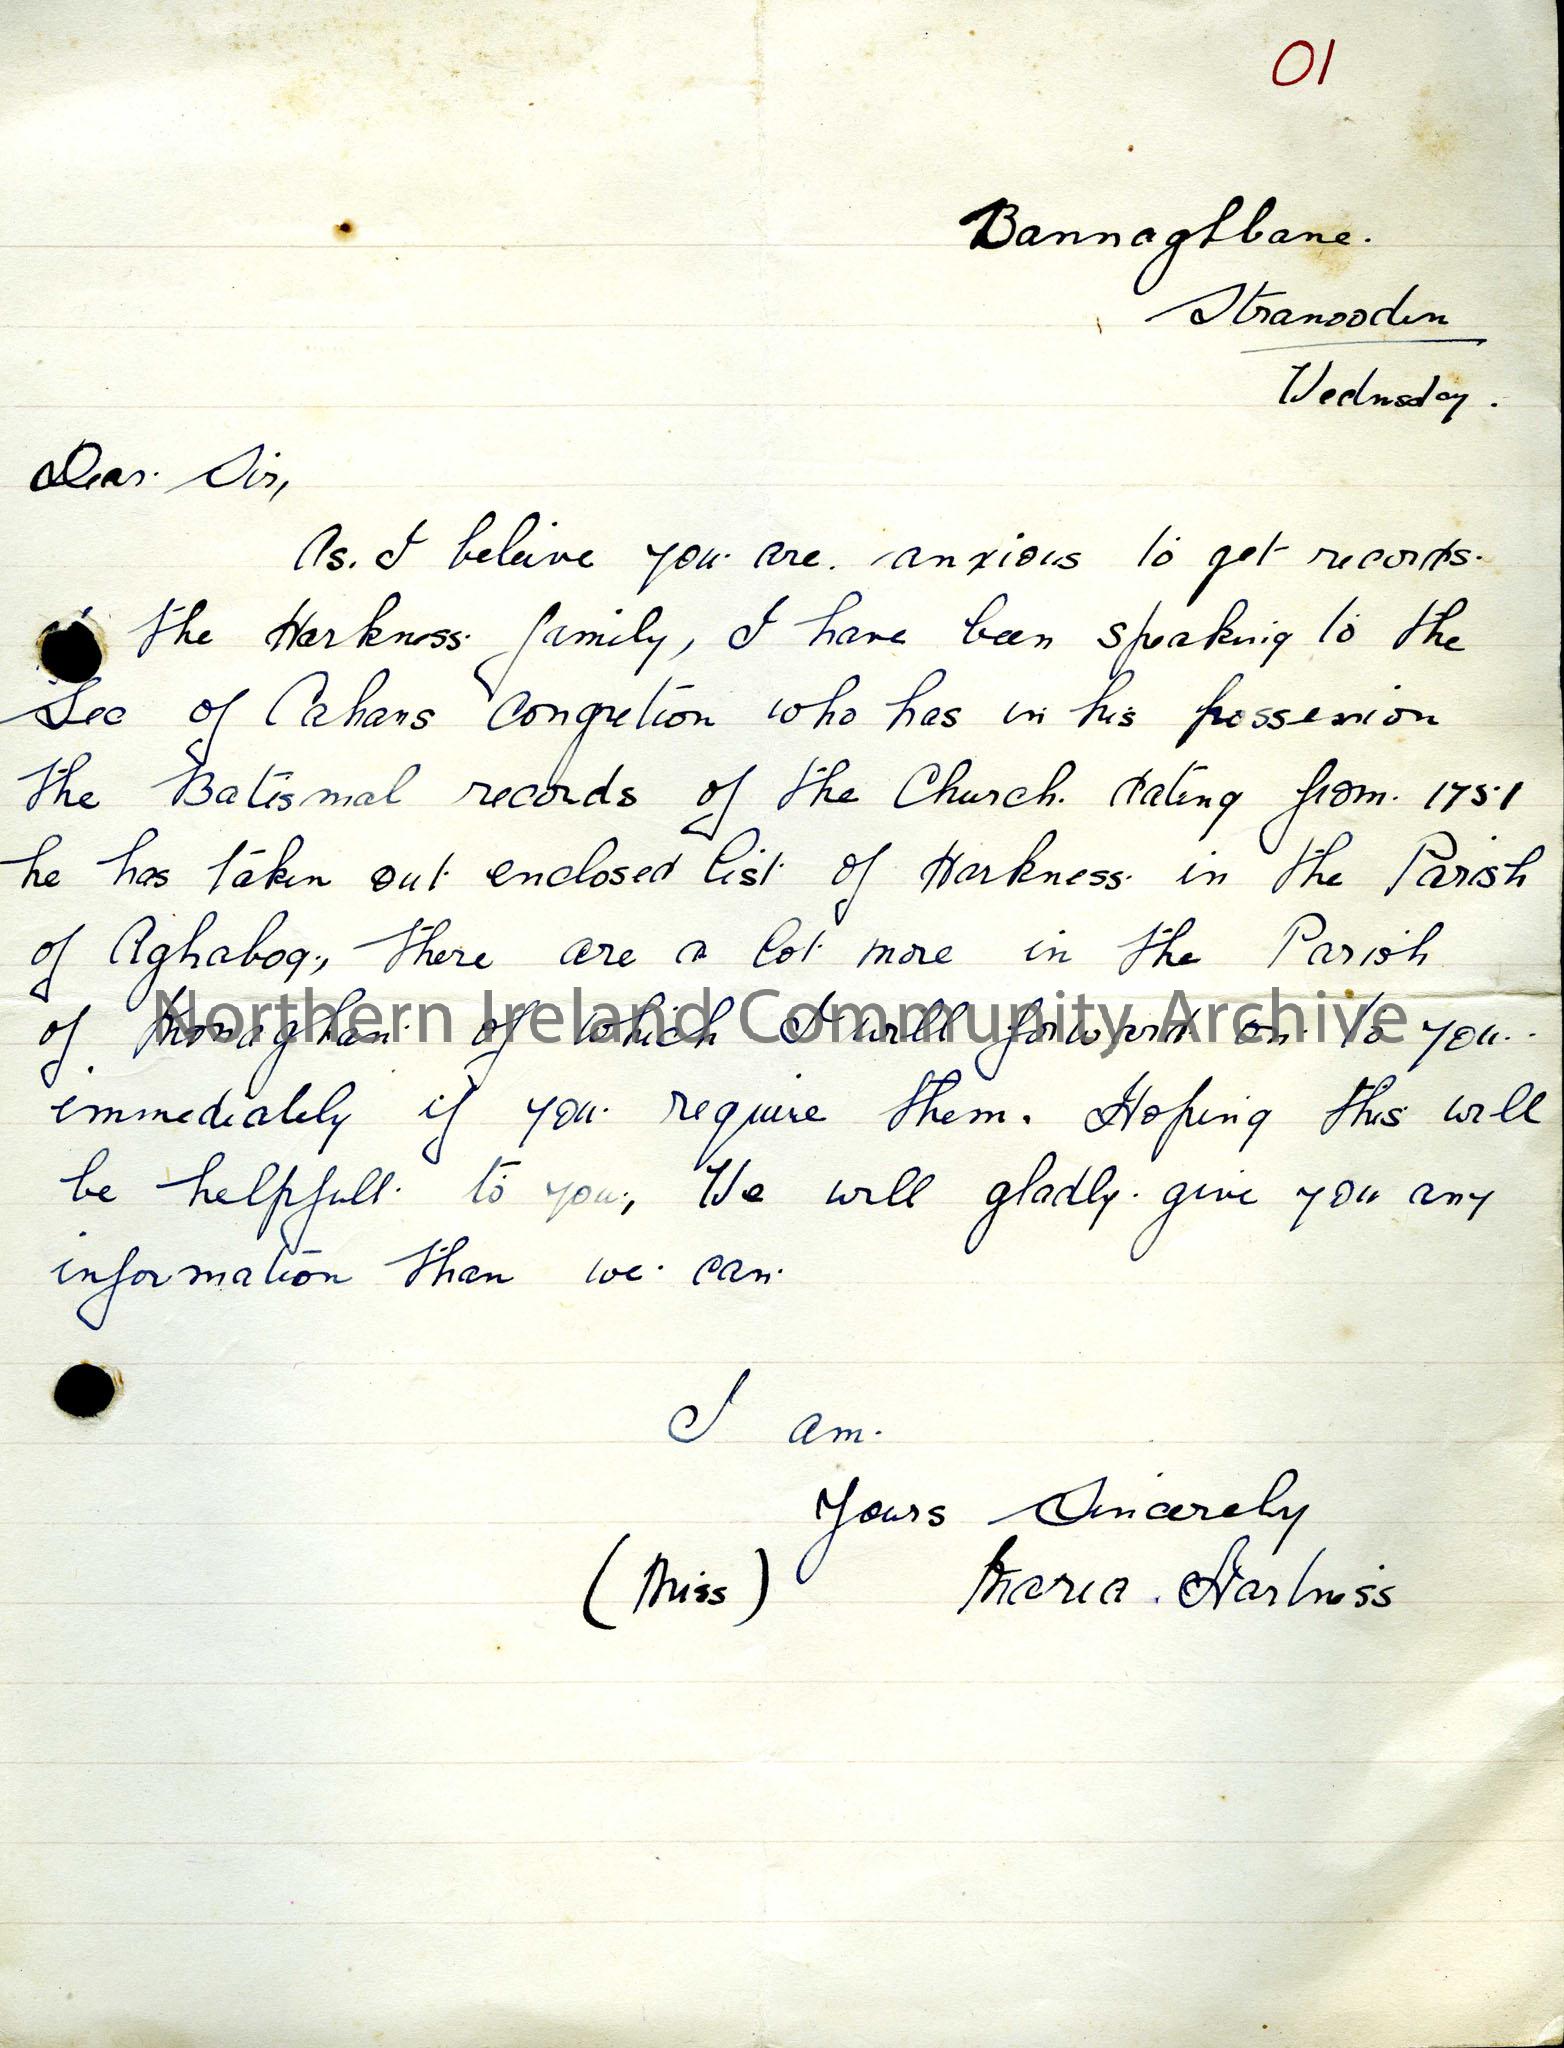 01
Bannaghbane.
Stranooden
Wednsday.
Dear Sir,
As. I beleive you are anxious to get records.
the Harkness family, I have been speaking to the
Sec of Cahans Congretion who has in his possession
the Batismal records of the Church. dating from. 1751
he has taken out enclosed list of Harkness in the Parish
of Aghabog, there are a lot more in the Parish
of Monaghan of which I will forward on to you.
Northern Ireland Community Archive
immediately if you require them. Hoping this will
be helpfull to you, We will gladly give you any
information than we can.
I am.
Yours Sincerely
(Miss) Maria. Harkniss